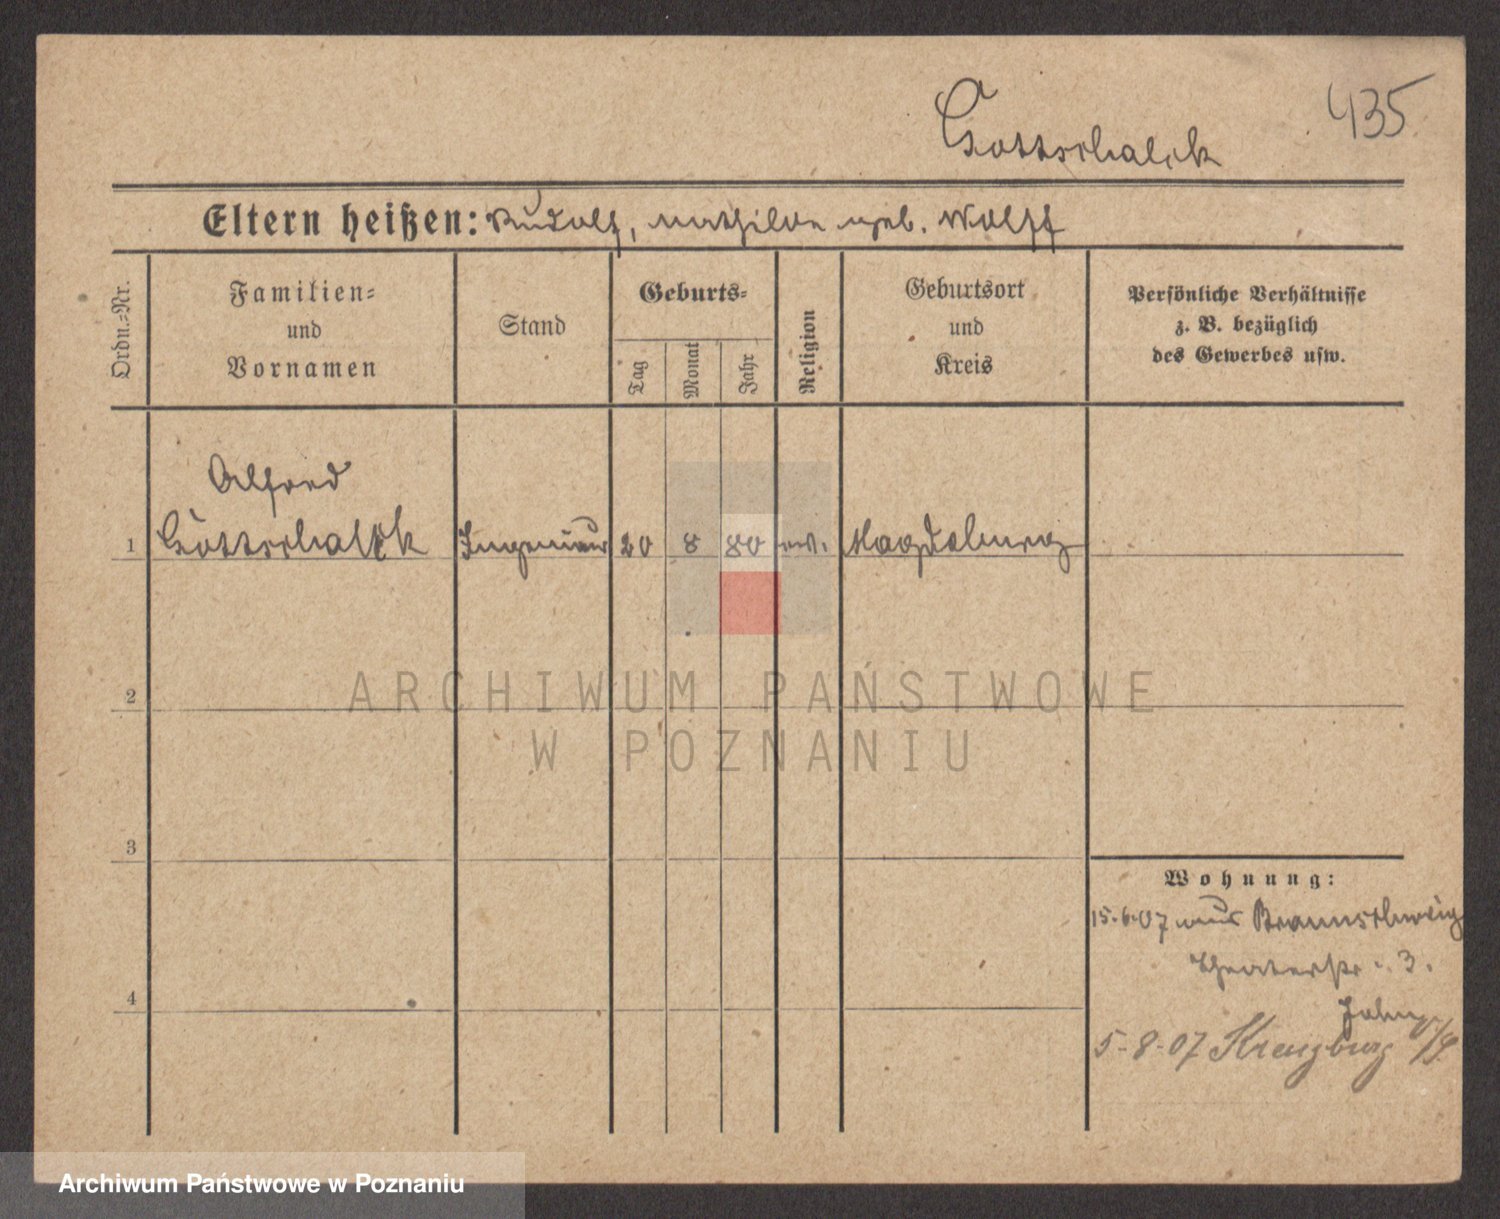 435
Gottschalck
Eltern heißen: Rudolf, Mathilde geb. Wolff
Ordn.-Nr.
Familien-
und
Vornamen
Stand
Geburts-
Tag
Monat
Jahr
Religion
Geburtsort
und
Kreis
Persönliche Verhältnisse
z. B. bezüglich
des Gewerbes usw.
Alfred
1 Gottschalck Ingenieur 20 8 80 ev. Magdeburg
2
ARCHIWUM PAŃSTWOWE
W POZNANIU
3
Wohnung:
15.6.07 aus Braunschweig
Theaterstr. 3.
4
5-8-07 Kreuzburg
Archiwum Państwowe w Poznaniu